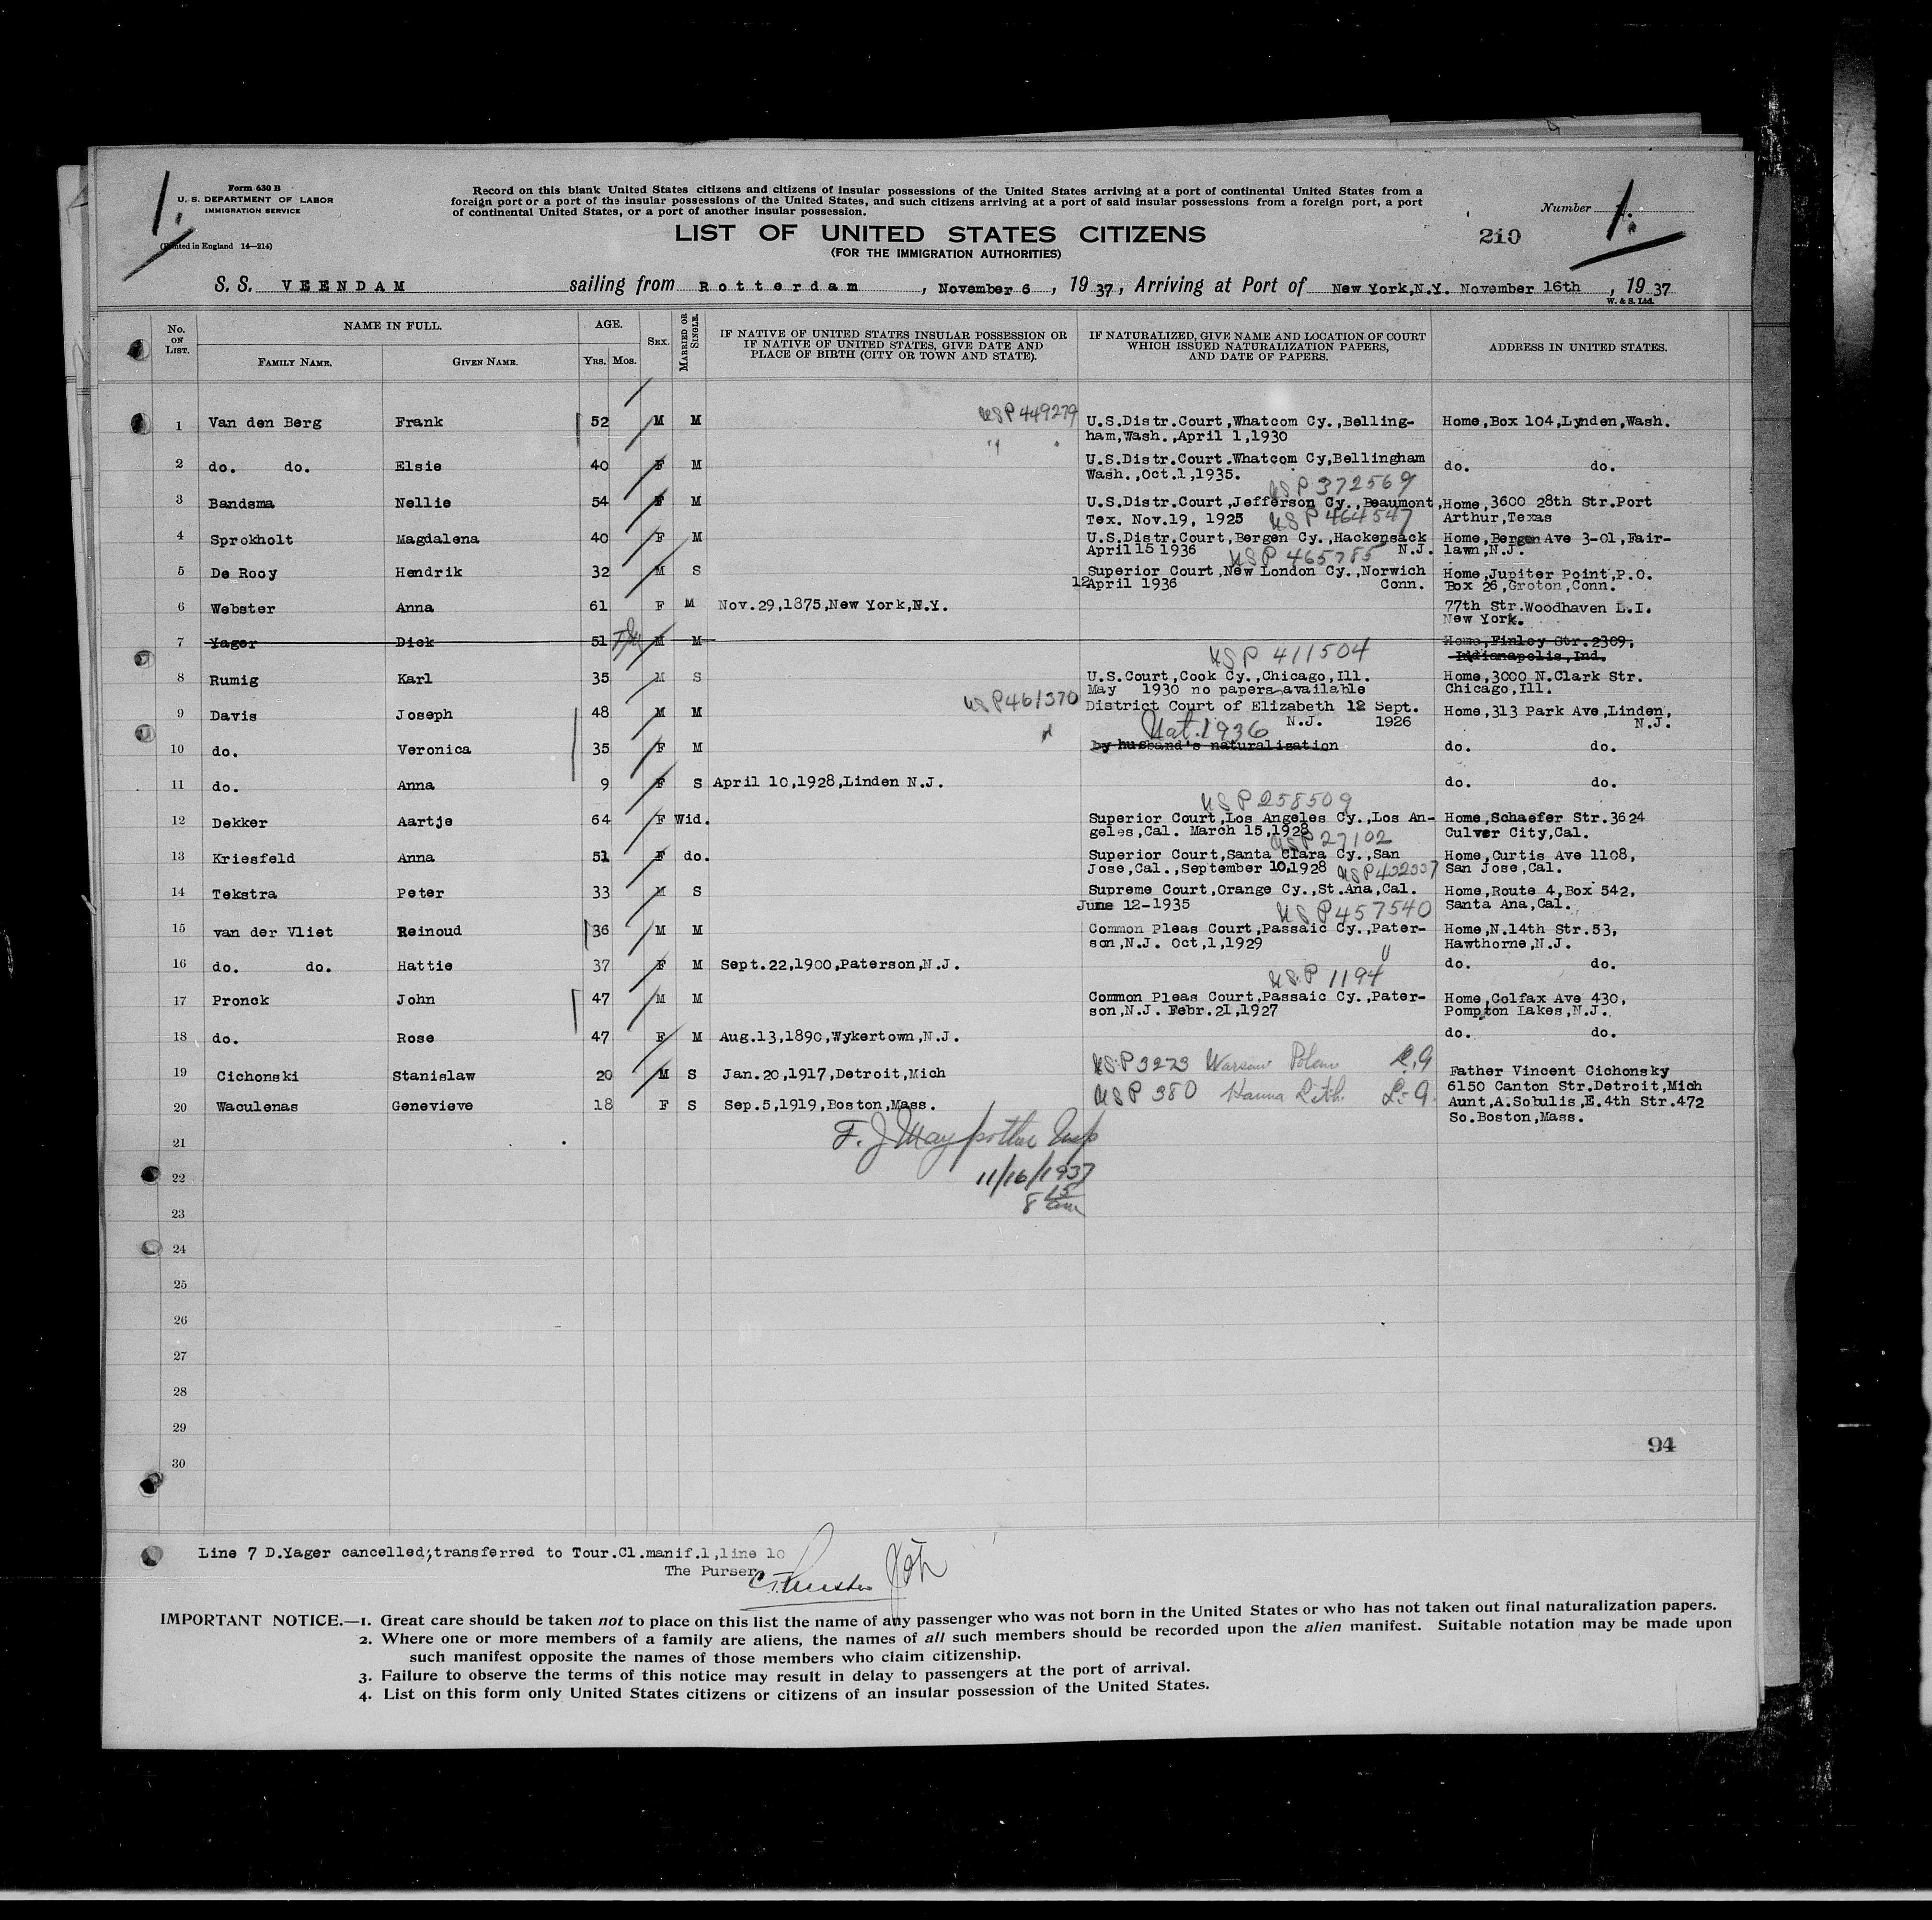 1.
Form 630 B
U. S. DEPARTMENT OF LABOR
IMMIGRATION SERVICE
(Printed in England 14—214)
Record on this blank United States citizens and citizens of insular possessions of the United States arriving at a port of continental United States from a
foreign port or a port of the insular possessions of the United States, and such citizens arriving at a port of said insular possessions from a foreign port, a port
of continental United States, or a port of another insular possession.
Number 1.
LIST OF UNITED STATES CITIZENS
210
(FOR THE IMMIGRATION AUTHORITIES)
S. S. VEENDAM sailing from Rotterdam, November 6, 1937, Arriving at Port of New York,N.Y. November 16th, 1937
W. & S. Ltd.
No. ON LIST.
NAME IN FULL.
FAMILY NAME.
GIVEN NAME.
AGE.
YRS. MOS.
SEX.
MARRIED OR SINGLE.
IF NATIVE OF UNITED STATES INSULAR POSSESSION OR
IF NATIVE OF UNITED STATES, GIVE DATE AND
PLACE OF BIRTH (CITY OR TOWN AND STATE).
IF NATURALIZED, GIVE NAME AND LOCATION OF COURT
WHICH ISSUED NATURALIZATION PAPERS,
AND DATE OF PAPERS.
ADDRESS IN UNITED STATES.
1 Van den Berg Frank 52 M M USP 449279 U.S.Distr.Court,Whatcom Cy.,Belling- Home,Box 104,Lynden,Wash.
" ham,Wash.,April 1,1930
2 do. do. Elsie 40 F M U.S.Distr.Court.Whatcom Cy,Bellingham do. do.
Wash.,Oct.1,1935.
USP 372569
3 Bandsma Nellie 54 F M U.S.Distr.Court,Jefferson Cy.,Beaumont, Home,3600 28th Str.Port
Tex. Nov.19, 1925 USP 464547 Arthur,Texas
4 Sprokholt Magdalena 40 F M U.S.Distr.Court,Bergen Cy.,Hackensack Home,Bergen Ave 3-01,Fair-
April 15 1936 USP 465785 N.J. lawn,N.J.
5 De Rooy Hendrik 32 M S Superior Court,New London Cy.,Norwich Home,Jupiter Point,P.O.
12April 1936 Conn. Box 26,Groton,Conn.
6 Webster Anna 61 F M Nov.29,1875,New York,N.Y. 77th Str.Woodhaven L.I.
New York.
7 Yager Dick 51 M M Home,Finley Str.2309,
Indianapolis,Ind.
USP 411504
8 Rumig Karl 35 M S U.S.Court,Cook Cy.,Chicago,Ill. Home,3000 N.Clark Str.
May 1930 no papers available Chicago,Ill.
9 Davis Joseph 48 M M USP461370 District Court of Elizabeth 12 Sept. Home,313 Park Ave,Linden,
N.J. 1926 N.J.
Nat. 1936
10 do. Veronica 35 F M by husband's naturalization do. do.
11 do. Anna 9 F S April 10,1928,Linden N.J. do. do.
USP 258509
12 Dekker Aartje 64 F Wid. Superior Court,Los Angeles Cy.,Los An- Home,Schaefer Str.3624
geles,Cal. March 15,1928 Culver City,Cal.
USP 27102
13 Kriesfeld Anna 51 F do. Superior Court,Santa Clara Cy.,San Home,Curtis Ave 1108,
Jose,Cal.,September 10,1928 San Jose,Cal.
14 Tekstra Peter 33 M S Supreme Court,Orange Cy.,St.Ana,Cal. Home,Route 4,Box 542,
June 12-1935 USP 457540 Santa Ana,Cal.
15 van der Vliet Reinoud 36 M M Common Pleas Court,Passaic Cy.,Pater- Home,N.14th Str.53,
son,N.J. Oct,1,1929 Hawthorne,N.J.
16 do. do. Hattie 37 F M Sept.22,1900,Paterson,N.J. do. do.
U.S.P 1194
17 Pronck John 47 M M Common Pleas Court,Passaic Cy.,Pater- Home,Colfax Ave 430,
son,N.J. Febr.21,1927 Pompton Lakes,N.J.
18 do. Rose 47 F M Aug.13,1890,Wykertown,N.J. do. do.
19 Cichonski Stanislaw 20 M S Jan.20,1917,Detroit,Mich USP 3273 Warsaw Father Vincent Cichonsky
6150 Canton Str.Detroit,Mich
20 Waculenas Genevieve 18 F S Sep.5,1919,Boston,Mass. USP 380 Lith. Aunt,A.Sobulis,E.4th Str.472
So.Boston,Mass.
21
22 11/16/1937
8 15 am
23
24
25
26
27
28
29
94
30
Line 7 D.Yager cancelled;transferred to Tour.Cl.manif.1,line 10
The Purser,
IMPORTANT NOTICE.—1. Great care should be taken not to place on this list the name of any passenger who was not born in the United States or who has not taken out final naturalization papers.
2. Where one or more members of a family are aliens, the names of all such members should be recorded upon the alien manifest. Suitable notation may be made upon
such manifest opposite the names of those members who claim citizenship.
3. Failure to observe the terms of this notice may result in delay to passengers at the port of arrival.
4. List on this form only United States citizens or citizens of an insular possession of the United States.